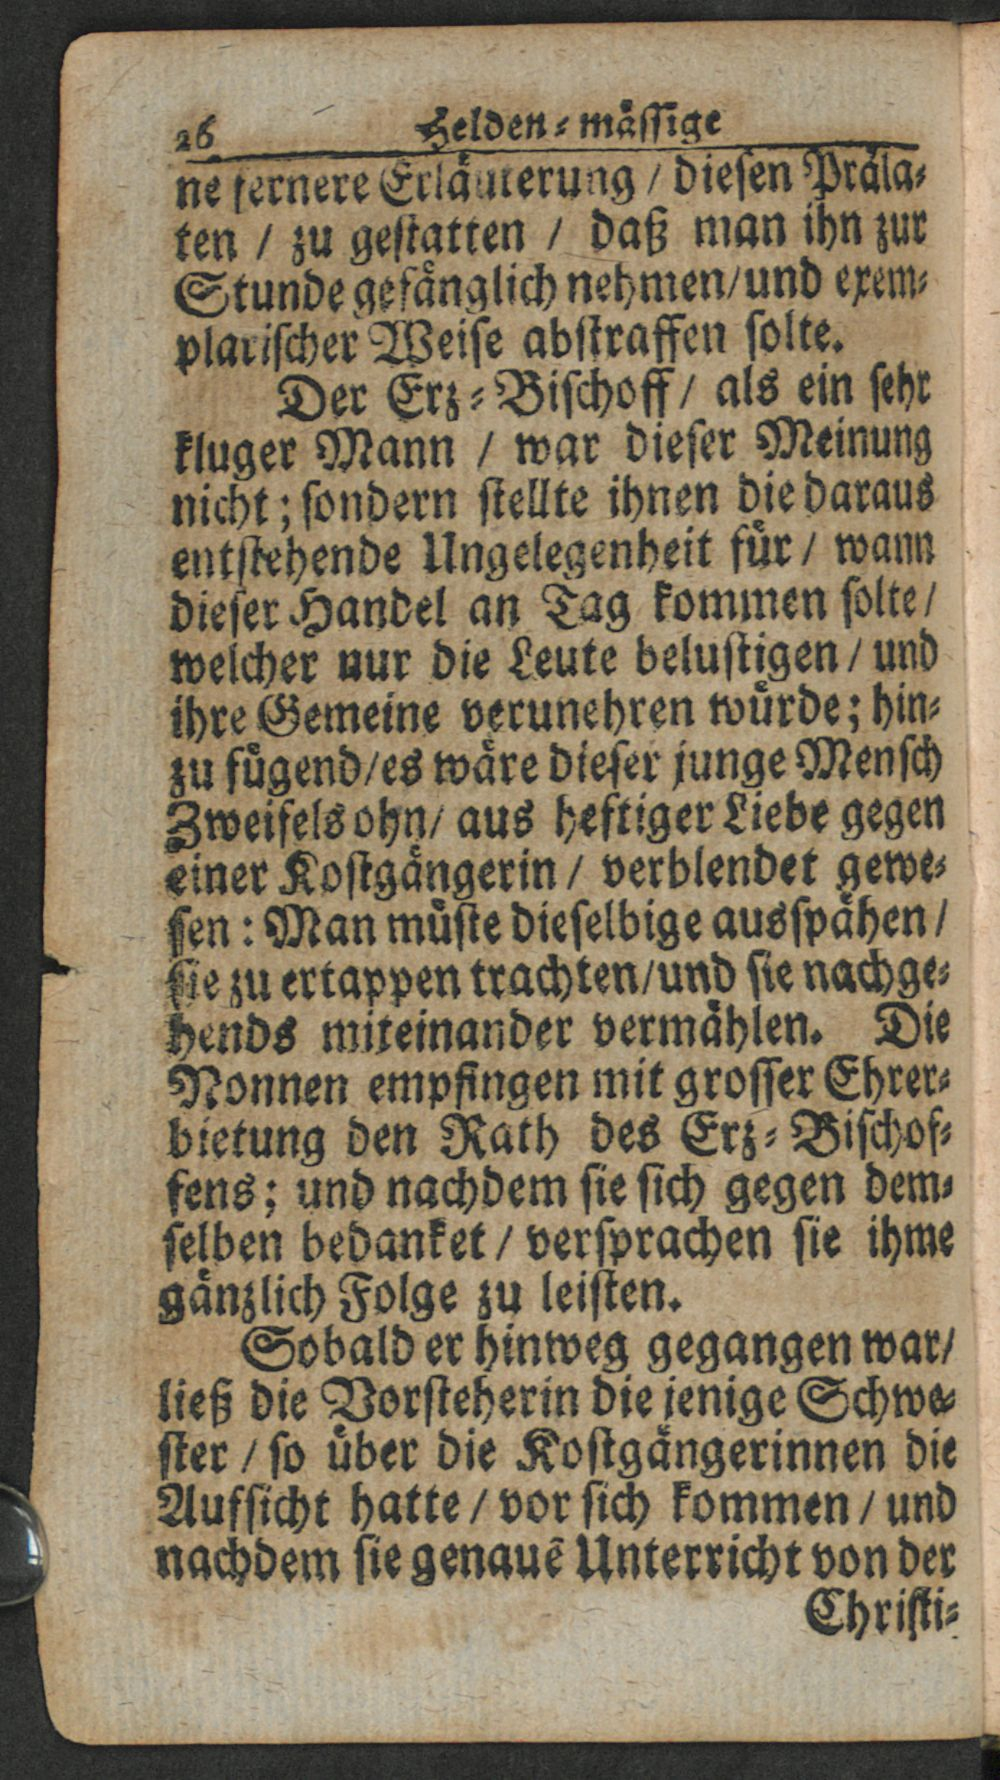 26 Helden-mässige
ne fernere Erläuterung / diesen Präla-
ten / zu gestatten / daß man ihn zur
Stunde gefänglich nehmen/und exem-
plarischer Weise abstraffen solte.
Der Erz-Bischoff / als ein sehr
kluger Mann / war dieser Meinung
nicht; sondern stellte ihnen die daraus
entstehende Ungelegenheit für / wann
dieser Handel an Tag kommen solte /
welcher nur die Leute belustigen / und
ihre Gemeine verunehren würde; hin-
zu fügend/es wäre dieser junge Mensch
Zweifels ohn/ aus heftiger Liebe gegen
einer Kostgängerin / verblendet gewe-
sen: Man müste dieselbige ausspähen /
sie zu ertappen trachten/und sie nachge-
hends miteinander vermählen. Die
Nonnen empfingen mit grosser Ehrer-
bietung den Rath des Erz-Bischof-
fens; und nachdem sie sich gegen dem-
selben bedanket / versprachen sie ihme
gänzlich Folge zu leisten.
Sobald er hinweg gegangen war/
ließ die Vorsteherin die jenige Schwe-
ster / so über die Kostgängerinnen die
Aufsicht hatte / vor sich kommen / und
nachdem sie genauē Unterricht von der
Christi-